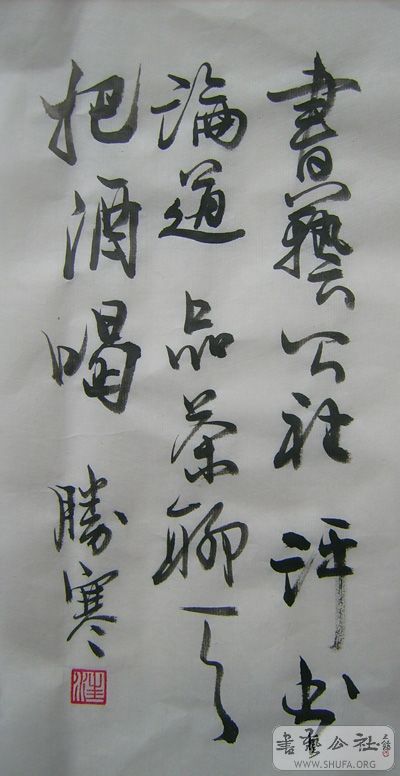 書藝公社 評书
論道 品茶聊天
把酒喝
勝寒
書藝公社
WWW.SHUFA.ORG